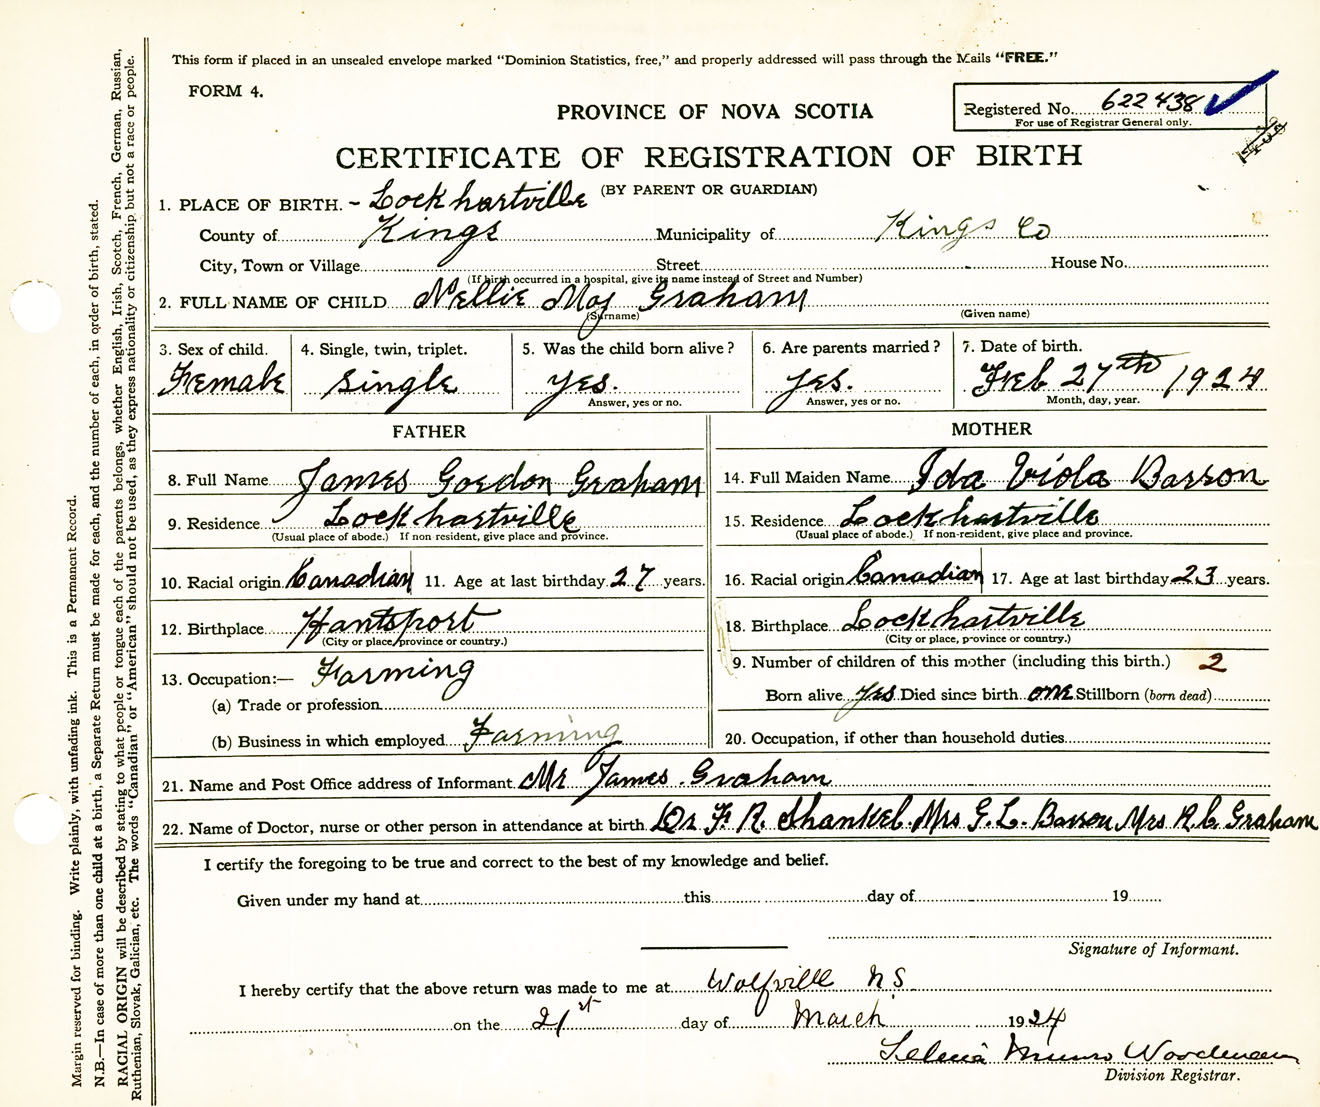 This form if placed in an unsealed envelope marked "Dominion Statistics, free," and properly addressed will pass through the Mails "FREE."
FORM 4.
PROVINCE OF NOVA SCOTIA
Registered No. 622438
For use of Registrar General only.
CERTIFICATE OF REGISTRATION OF BIRTH
(BY PARENT OR GUARDIAN)
1. PLACE OF BIRTH. - Lockhartville
County of Kings Municipality of Kings Co
City, Town or Village Street House No.
(If birth occurred in a hospital, give its name instead of Street and Number)
2. FULL NAME OF CHILD Nellie May Graham
(Surname) (Given name)
3. Sex of child. 4. Single, twin, triplet. 5. Was the child born alive? 6. Are parents married? 7. Date of birth.
Female single yes. yes. Feb 27th 1924
Answer, yes or no. Answer, yes or no. Month, day, year.
FATHER MOTHER
8. Full Name James Gordon Graham 14. Full Maiden Name Ida Viola Barron
9. Residence Lockhartville 15. Residence Lockhartville
(Usual place of abode.) If non resident, give place and province. (Usual place of abode.) If non-resident, give place and province.
10. Racial origin Canadian 11. Age at last birthday 27 years. 16. Racial origin Canadian 17. Age at last birthday 23 years.
12. Birthplace Hantsport 18. Birthplace Lockhartville
(City or place, province or country.) (City or place, province or country.)
13. Occupation:— Farming 9. Number of children of this mother (including this birth.) 2
(a) Trade or profession Born alive yes Died since birth one Stillborn (born dead)
(b) Business in which employed Farming 20. Occupation, if other than household duties
21. Name and Post Office address of Informant Mr James Graham
22. Name of Doctor, nurse or other person in attendance at birth Dr F. R. Shankel. Mrs G. L. Barron Mrs R. C. Graham
I certify the foregoing to be true and correct to the best of my knowledge and belief.
Given under my hand at this day of 19
Signature of Informant.
I hereby certify that the above return was made to me at Wolfville N S
on the 21st day of March 1924
Munro Woodman
Division Registrar.
Margin reserved for binding. Write plainly, with unfading ink. This is a Permanent Record.
N.B.—In case of more than one child at a birth, a Separate Return must be made for each, and the number of each, in order of birth, stated.
RACIAL ORIGIN will be described by stating to what people or tongue each of the parents belongs, whether English, Irish, Scotch, French, German, Russian,
Ruthenian, Slovak, Galician, etc. The words "Canadian" or "American" should not be used, as they express nationality or citizenship but not a race or people.